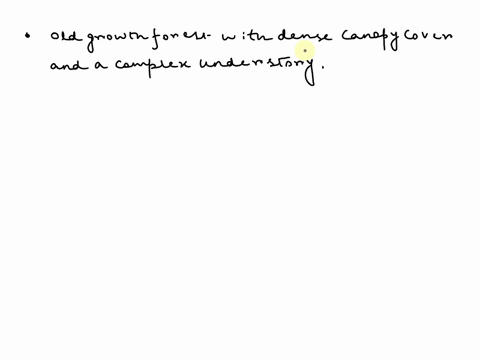 • old growth forest with dense canopy cover
and a complex understory.